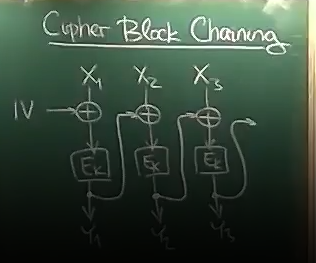 Cipher Block Chaining
X₁ X₂ X₃
IV
E_K E_K E_K
y₁ y₂ y₃